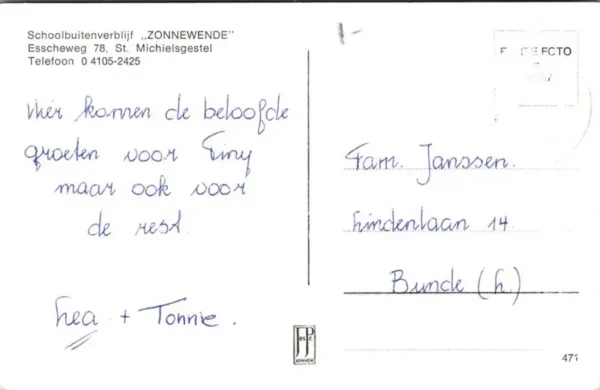 Schoolbuitenverblijf „ZONNEWENDE"
Esscheweg 78, St. Michielsgestel
Telefoon 0 4105-2425
Hier komen de beloofde
groeten voor Tiny
maar ook voor
de rest.
Lea + Tonnie.
Fam. Janssen.
Lindenlaan 14
Bunde (L).
471